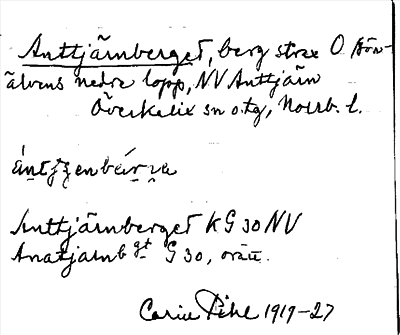 Anttjärnberget, berg strax O Hön-
älvens nedre lopp, NV Anttjärn
Överkalix sn o. tg, Norrb. l.
Anttjärnberget KG 30 NV
Anatjärnb gt G 30, orätt.
Carin Pihl 1917-27